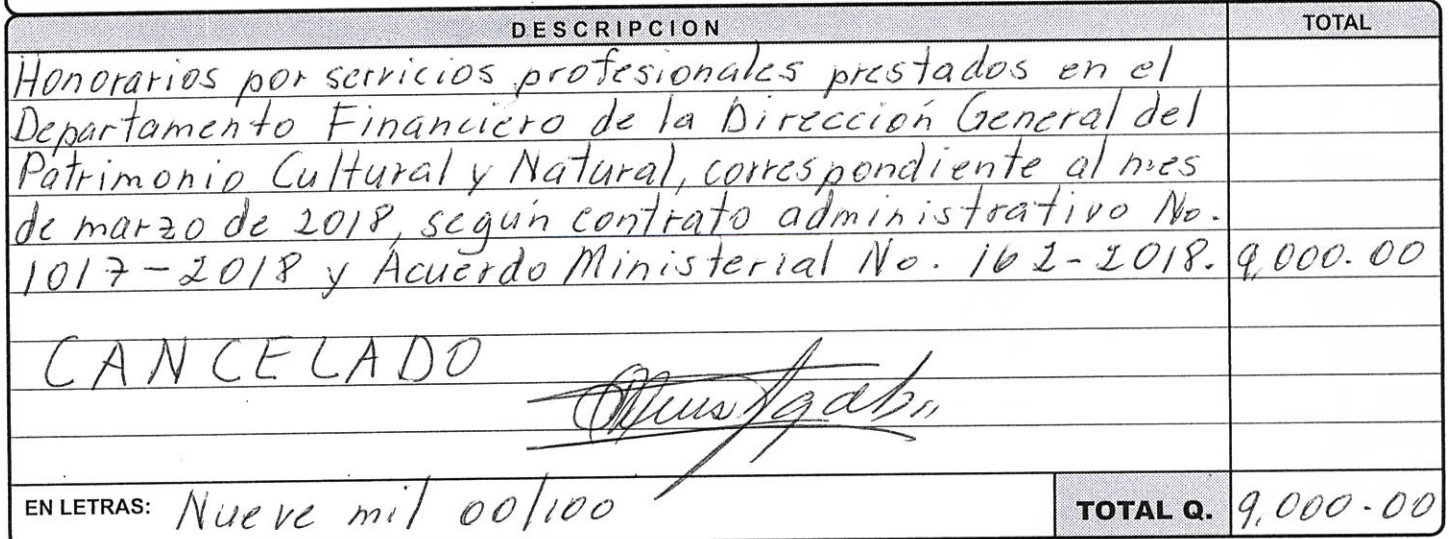 DESCRIPCION TOTAL
Honorarios por servicios profesionales prestados en el
Departamento Financiero de la Dirección General del
Patrimonio Cultural y Natural, correspondiente al mes
de marzo de 2018, según contrato administrativo No.
1017-2018 y Acuerdo Ministerial No. 162-2018. 9,000.00
CANCELADO
EN LETRAS: Nueve mil 00/100 TOTAL Q. 9,000.00